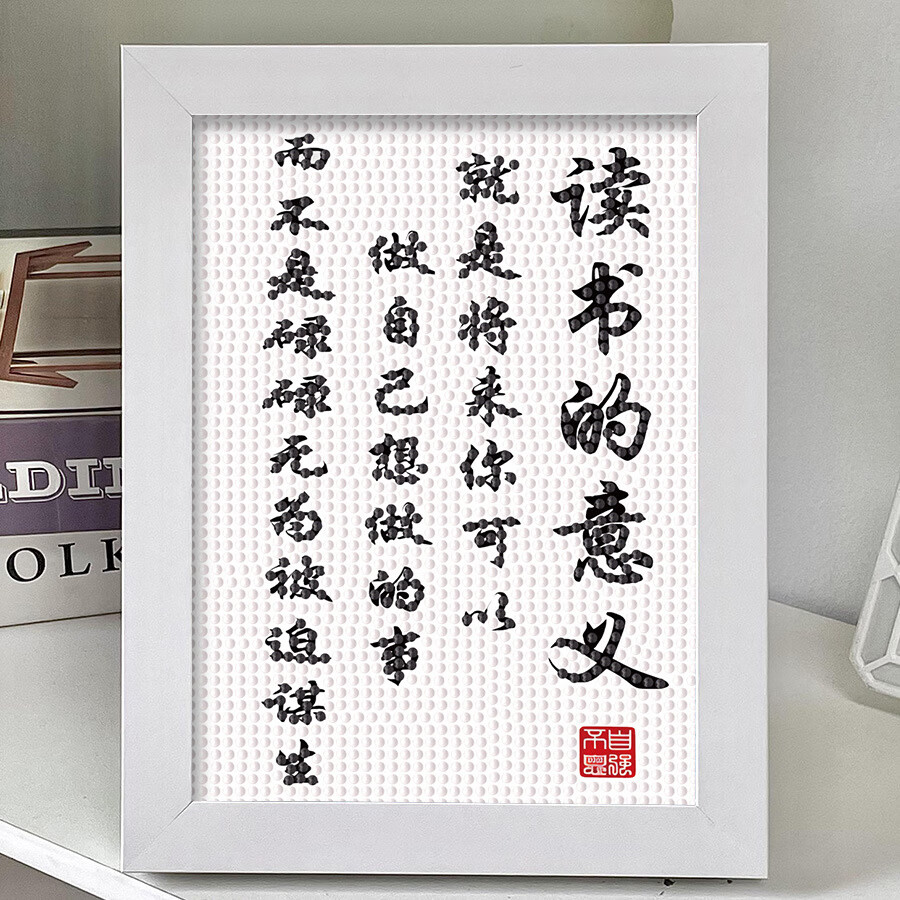 读书的意义
就是将来你可以
做自己想做的事
而不是碌碌无为被迫谋生
自强不息
OLK